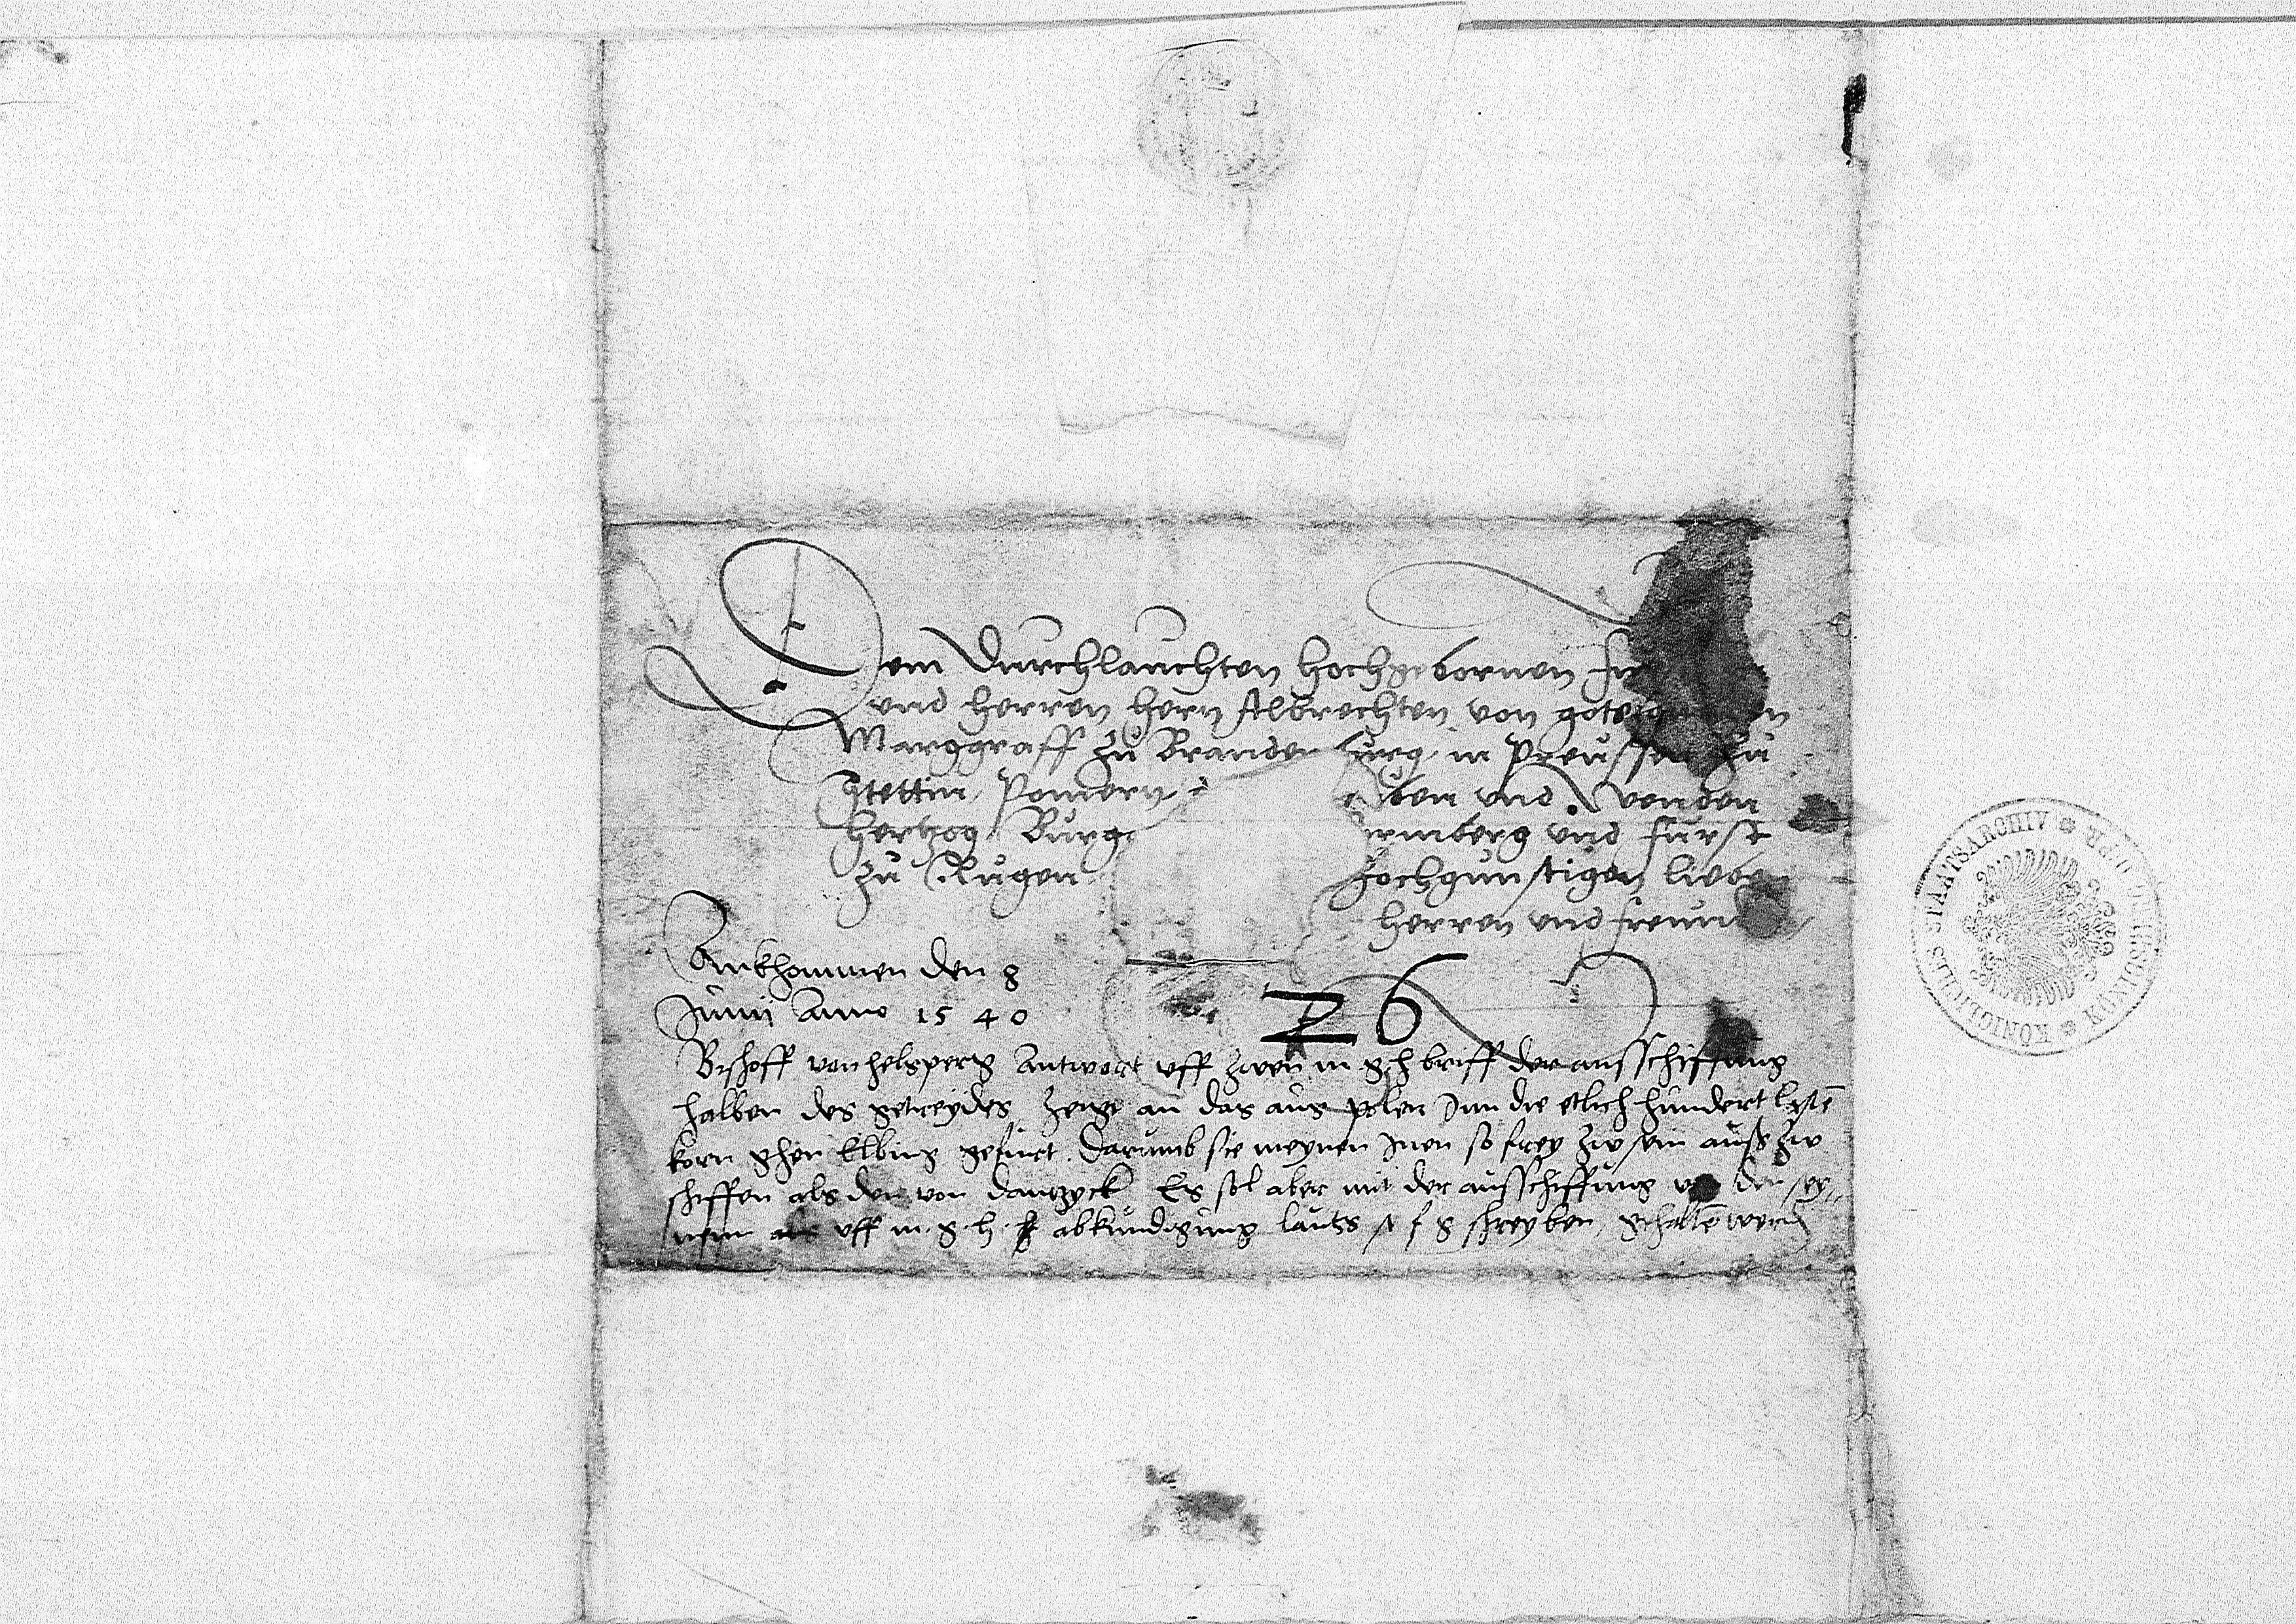 Dem durchlauchten hochgebornen
und herren hern Albrechten von gots
Marggraff zu Brandenburg in Preussen zu
Stettin Pomern und Wenden
hertzog Burg und furst
zu Rugen hochgunstigen lieben
herren und
Ankhommen den 8
Junij Anno 1540
26
Bischoff von helsperg Antwort uff zwen m g h briff der ausschiffung
halben des getreydes zeigt an das aus polen Inn die etlich hundert leste
korn ghen Elbing gefurt Darumb sie meynen Inen so frey zw sein auss zw
schiffen als den von dantzyck Es sol aber mit der ausschiffung den sey„
nen uff m. g. h. abkundigung lauts s f g schreyben, gehalten werden
KÖNIGLICHES STAATSARCHIV KÖNIGSBERG O/PR.